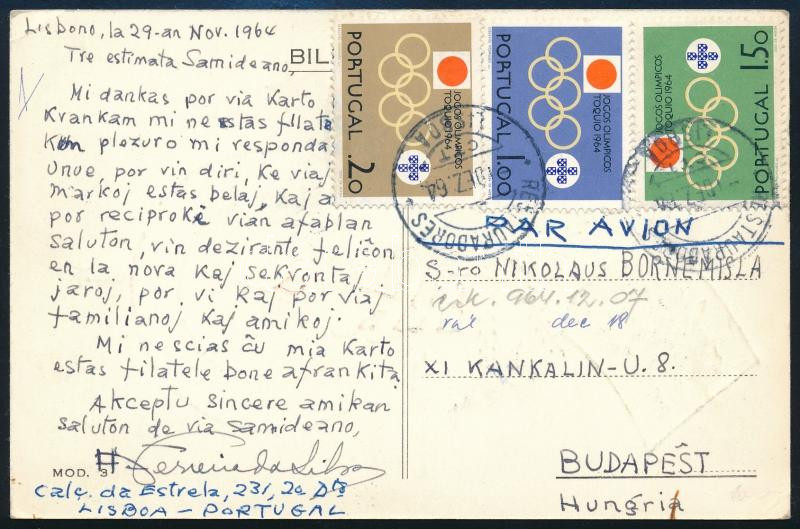 Lisbono, la 29-an Nov. 1964
Tre estimata Samideano,
BIL
Mi dankas por via Karto
Kvankam mi ne estas filate
Kun plezuro mi responda
Unue, por vin diri, Ke viaj
markoj estas belaj, Kaj a
por reciproki vian afablan
saluton, vin dezirante feliĉon
en la nova Kaj seKvontaj
jaroj, por vi Kaj por viaj
familianoj Kaj amikoj.
Mi nescias ĉu mia Karto
estas filatele bone afrankita
Akceptu sincere amikan
saluton de via samideano,
MOD. 3
Ferreira da Silva
Calç. da Estrela, 231, 2º Dtº
LISBOA - PORTUGAL
PORTUGAL 2.20
JOGOS OLIMPICOS
TOQUIO 1964
PORTUGAL 1.00
JOGOS OLIMPICOS
TOQUIO 1964
PORTUGAL 1.50
JOGOS OLIMPICOS
TOQUIO 1964
DEZ. 64
RESTAURADORES
RESTAURADORES
PAR AVION
S-ro NIKOLAUS BORNEMISLA
964.12.07
dec 18
XI KANKALIN-U.8.
BUDAPEŜT
Hungria